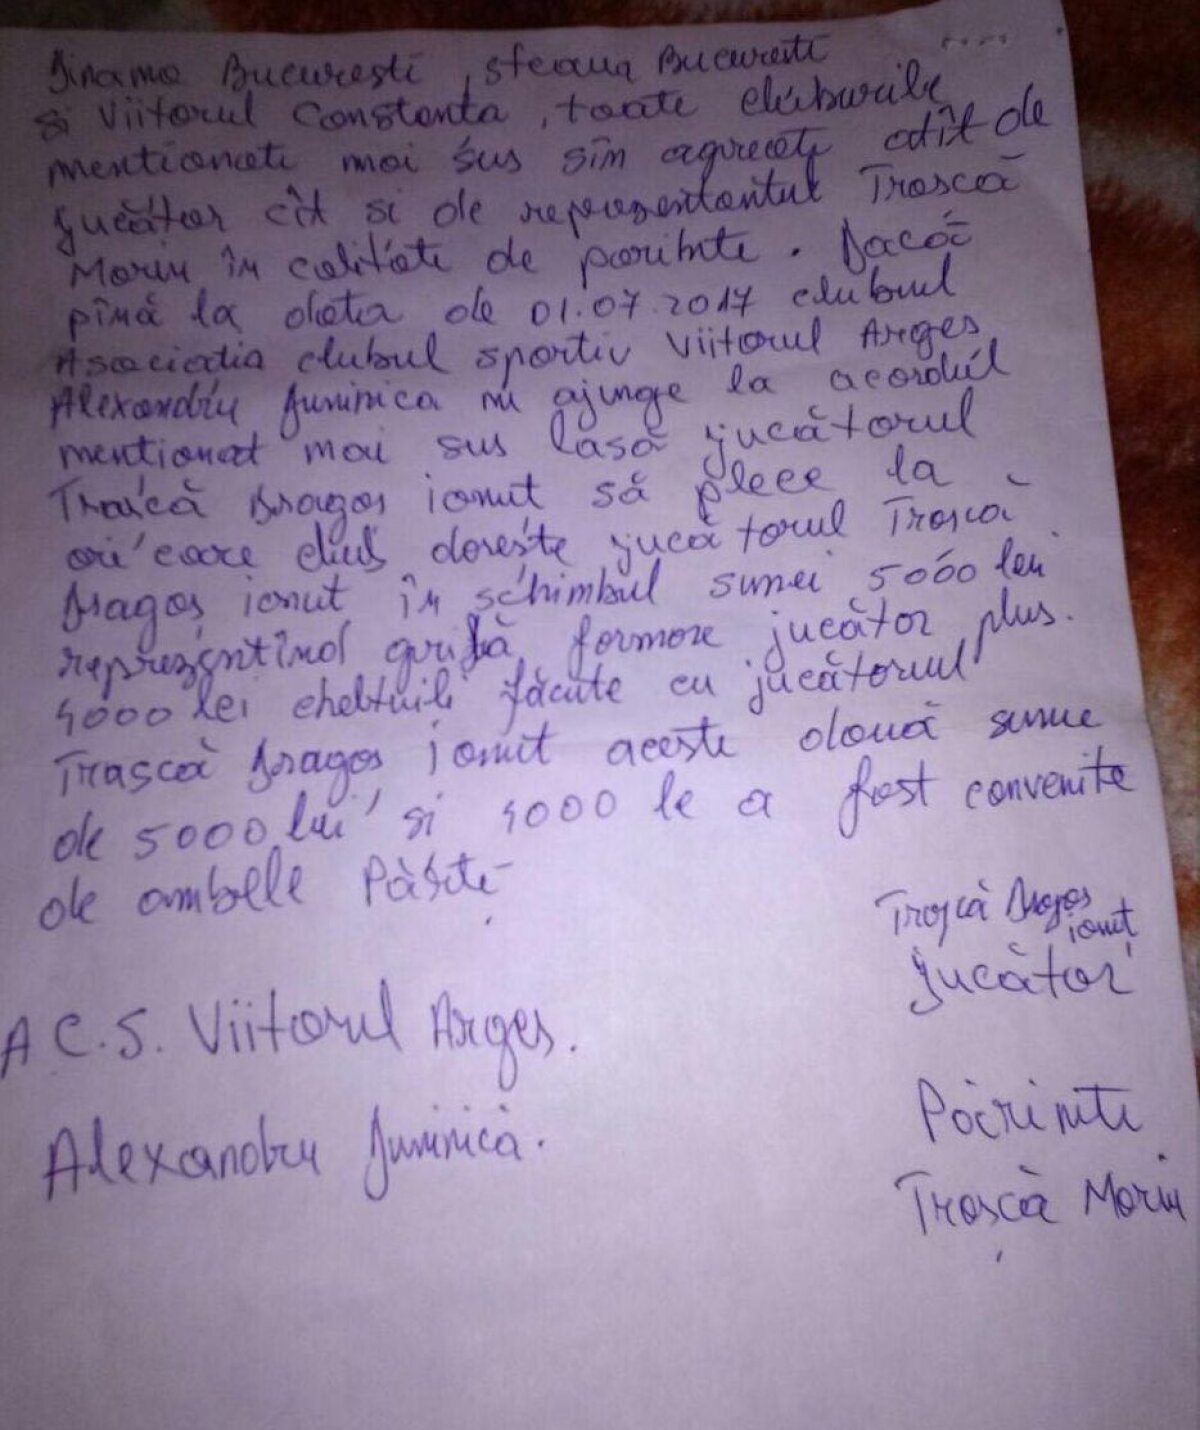 Dinamo Bucuresti, steaua Bucuresti
si Viitorul Constanta, toate cluburile
mentionate mai sus sin agreate atit de
jucător cît si de reprezentantul Trască
Marin în calitate de parinte. Dacă
pînă la data de 01.07.2017 clubul
Asociatia clubul sportiv Viitorul Arges
Alexandru Juninica nu ajunge la acordul
mentionat mai sus lasă jucătorul
Trașcă Dragoș ionut să plece la
ori care club dorește jucătorul Trașcă
Dragoș ionut în schimbul sumei 5000 lei
reprezentînd grilă formare jucător plus.
4000 lei cheltuili făcute cu jucătorul
Trașcă Dragoș ionut aceste două sume
de 5000 lui si 4000 le a fost convenite
de ambele Părti
Trașcă Dragoș
ionuț
jucător
A C.S. Viitorul Argeș.
Alexandru Juninică.
Părinte
Trașcă Marin